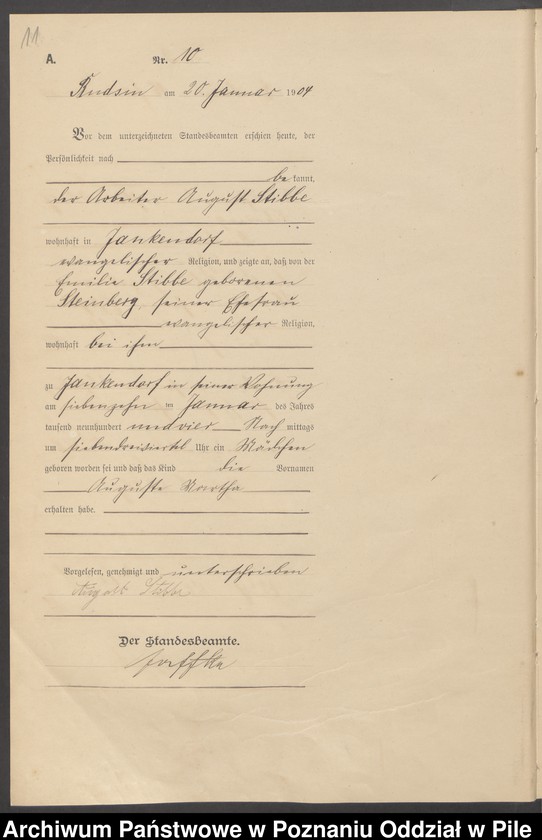 11
A.
Nr. 10
am 20. Januar 1904
Vor dem unterzeichneten Standesbeamten erschien heute, der
Persönlichkeit nach
bekannt,
der Arbeiter August Stibbe
wohnhaft in Jankendorf
evangelischer Religion, und zeigte an, daß von der
Emilie Stibbe geborenen
Steinberg, seiner Ehefrau
evangelischer Religion,
wohnhaft bei ihm
zu Jankendorf in seiner Wohnung
am siebenzehn ten Januar des Jahres
tausend neunhundert und vier Nach mittags
um sieben dreiviertel Uhr ein Mädchen
geboren worden sei und daß das Kind die Vornamen
Auguste Martha
erhalten habe.
Vorgelesen, genehmigt und unterschrieben
August Stibbe
Der Standesbeamte.
Archiwum Państwowe w Poznaniu Oddział w Pile